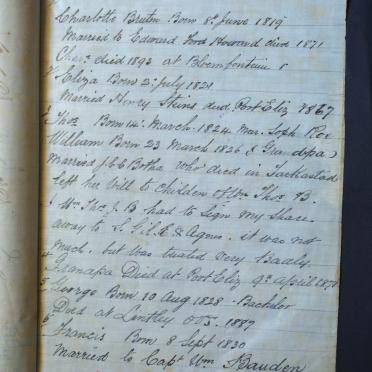 Charlotte Bruton Born 8th June 1819
Married to Edward Ford Howard died 1871
Char: died 1893 at Bloemfontein
Eliza Born 2nd July 1821
Married Henry Stins died Port Eliz 1867
Thos Born 14 March 1824 Mar. Soph Rex
William Born 23 March 1826 (Grandpa)
Married J E C Botha who died in Tarkastad
left her Will to children of Wm Thos B.
Wm Thos J. B had to Sign my Share
away to & Agnes. it was not
much, but was treated very Badly.
Granapa Died at Port Eliz 9th April 1878
George Born 10 Aug 1828 - Bachelor
Died at Lentley OFS. 1887
Francis Born 8 Sept 1830
Married to Capt Wm Bauden